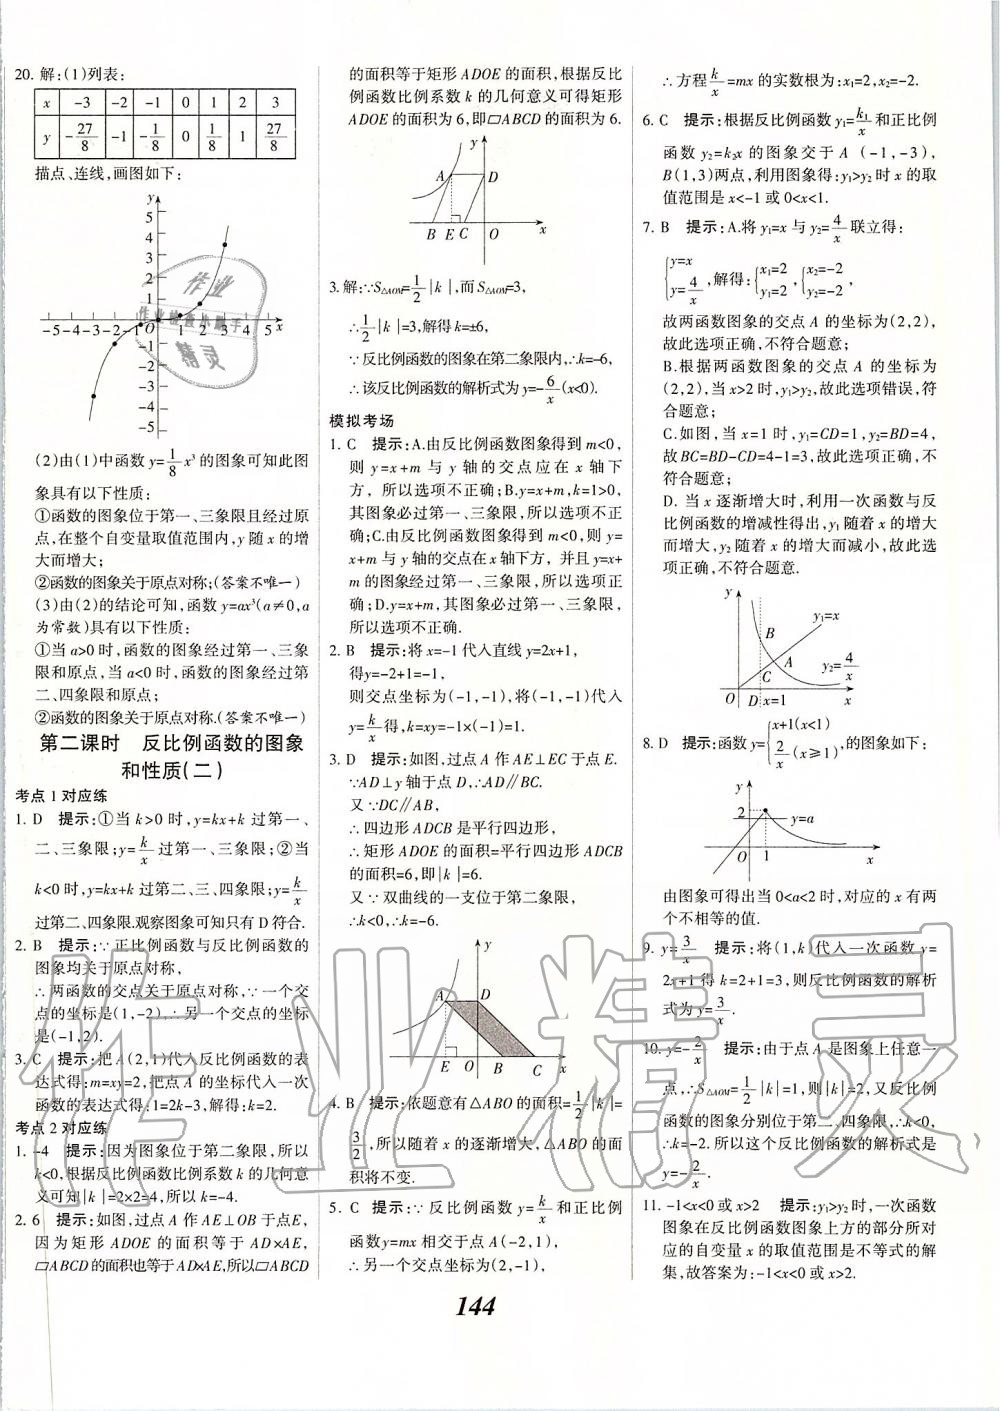 20. 解:(1)列表:
x −3 −2 −1 0 1 2 3
y −27/8 −1 −1/8 0 1/8 1 27/8
描点、连线,画图如下:
(2)由(1)中函数 y=1/8 x³ 的图象可知此图
象具有以下性质:
①函数的图象位于第一、三象限且经过原
点,在整个自变量取值范围内,y 随 x 的增
大而增大;
②函数的图象关于原点对称;(答案不唯一)
(3)由(2)的结论可知,函数 y=ax³(a≠0,a
为常数)具有以下性质:
①当 a>0 时,函数的图象经过第一、三象
限和原点,当 a<0 时,函数的图象经过第
二、四象限和原点;
②函数的图象关于原点对称.(答案不唯一)
第二课时 反比例函数的图象
和性质(二)
考点 1 对应练
1. D 提示:①当 k>0 时,y=kx+k 过第一、
二、三象限;y=k/x 过第一、三象限;②当
k<0 时,y=kx+k 过第二、三、四象限;y=k/x
过第二、四象限.观察图象可知只有 D 符合.
2. B 提示:∵正比例函数与反比例函数的
图象均关于原点对称,
∴两函数的交点关于原点对称,∵一个交
点的坐标是(1,−2),∴另一个交点的坐标
是(−1,2).
3. C 提示:把 A(2,1)代入反比例函数的表
达式得:m=xy=2,把点 A 的坐标代入一次
函数的表达式得:1=2k−3,解得:k=2.
考点 2 对应练
1. −4 提示:因为图象位于第二象限,所以
k<0,根据反比例函数比例系数 k 的几何意
义可知|k|=2×2=4,所以 k=−4.
2. 6 提示:如图,过点 A 作 AE⊥OB 于点E,
因为矩形 ADOE 的面积等于 AD×AE,
▱ABCD 的面积也等于 AD×AE,所以▱ABCD
的面积等于矩形 ADOE 的面积,根据反比
例函数比例系数 k 的几何意义可得矩形
ADOE 的面积为 6,即▱ABCD 的面积为 6.
y
A D
B E C O x
3. 解:∵S△AOM=1/2|k|,而 S△AOM=3,
∴1/2|k|=3,解得 k=±6,
∵反比例函数的图象在第二象限内,∴k=−6,
∴该反比例函数的解析式为 y=−6/x(x<0).
模拟考场
1. C 提示:A.由反比例函数图象得到 m<0,
则 y=x+m 与 y 轴的交点应在 x 轴下
方, 所以选项不正确;B.y=x+m,k=1>0,
其图象必过第一、三象限,所以选项不正
确;C.由反比例函数图象得到 m<0,则 y=
x+m 与 y 轴的交点在 x 轴下方, 并且 y=x+
m 的图象经过第一、三象限,所以选项正
确;D.y=x+m,其图象必过第一、三象限,
所以选项不正确.
2. B 提示:将 x=−1 代入直线 y=2x+1,
得y=−2+1=−1,
则交点坐标为(−1,−1),将(−1,−1)代入
y=k/x 得,k=xy=−1×(−1)=1.
3. D 提示:如图,过点 A 作 AE⊥EC 于点 E.
∵AD⊥y 轴于点 D,∴AD∥BC.
又∵DC∥AB,
∴四边形 ADCB 是平行四边形,
∴矩形 ADOE 的面积=平行四边形 ADCB
的面积=6,即|k|=6.
又∵双曲线的一支位于第二象限,
∴k<0,∴k=−6.
y
A D
E O B C x
4. B 提示:依题意有△ABO 的面积=1/2|k|=
3/2,所以随着 x 的逐渐增大,△ABO 的面
积将不变.
5. C 提示:∵反比例函数 y=k/x 和正比例
函数y=mx 相交于点 A(−2,1),
∴另一个交点坐标为(2,−1),
∴方程k/x=mx 的实数根为:x₁=2,x₂=−2.
6. C 提示:根据反比例函数 y₁=k₁/x 和正比例
函数 y₂=k₂x 的图象交于 A (−1,−3),
B(1,3)两点,利用图象得:y₁>y₂ 时 x 的取
值范围是 x<−1 或 0<x<1.
7. B 提示:A.将 y₁=x 与 y₂=4/x 联立得:
{y=x, y=4/x, 解得:{x₁=2, y₁=2, {x₂=−2, y₂=−2,
故两函数图象的交点 A 的坐标为(2,2),
故此选项正确,不符合题意;
B.根据两函数图象的交点 A 的坐标为
(2,2),当 x>2 时,y₁>y₂,故此选项错误,符
合题意;
C.如图,当 x=1 时,y₁=CD=1,y₂=BD=4,
故 BC=BD−CD=4−1=3,故此选项正确,不
符合题意;
D. 当 x 逐渐增大时,利用一次函数与反
比例函数的增减性得出,y₁ 随着 x 的增大
而增大,y₂ 随着 x 的增大而减小,故此选
项正确,不符合题意.
y
y₁=x
B
A
C
y₂=4/x
O D x=1 x
8. D 提示:函数 y={x+1(x<1) 2/x(x≥1),的图象如下:
y
2 y=a
O 1 x
由图象可得出当 0<a<2 时,对应的 x 有两
个不相等的值.
9. y=3/x 提示:将(1,k)代入一次函数 y=
2x+1 得 k=2+1=3,则反比例函数的解析
式为 y=3/x.
10. y=−2/x 提示:由于点 A 是图象上任意一
点,∴S△AOM=1/2|k|=1,则|k|=2,又反比例
函数的图象分别位于第二、四象限,∴k<0,
∴k=−2.所以这个反比例函数的解析式是
y=−2/x.
11. −1<x<0 或 x>2 提示:y₁>y₂时,一次函数
图象在反比例函数图象上方的部分所对
应的自变量 x 的取值范围是不等式的解
集,故答案为:−1<x<0 或 x>2.
144
作业精灵